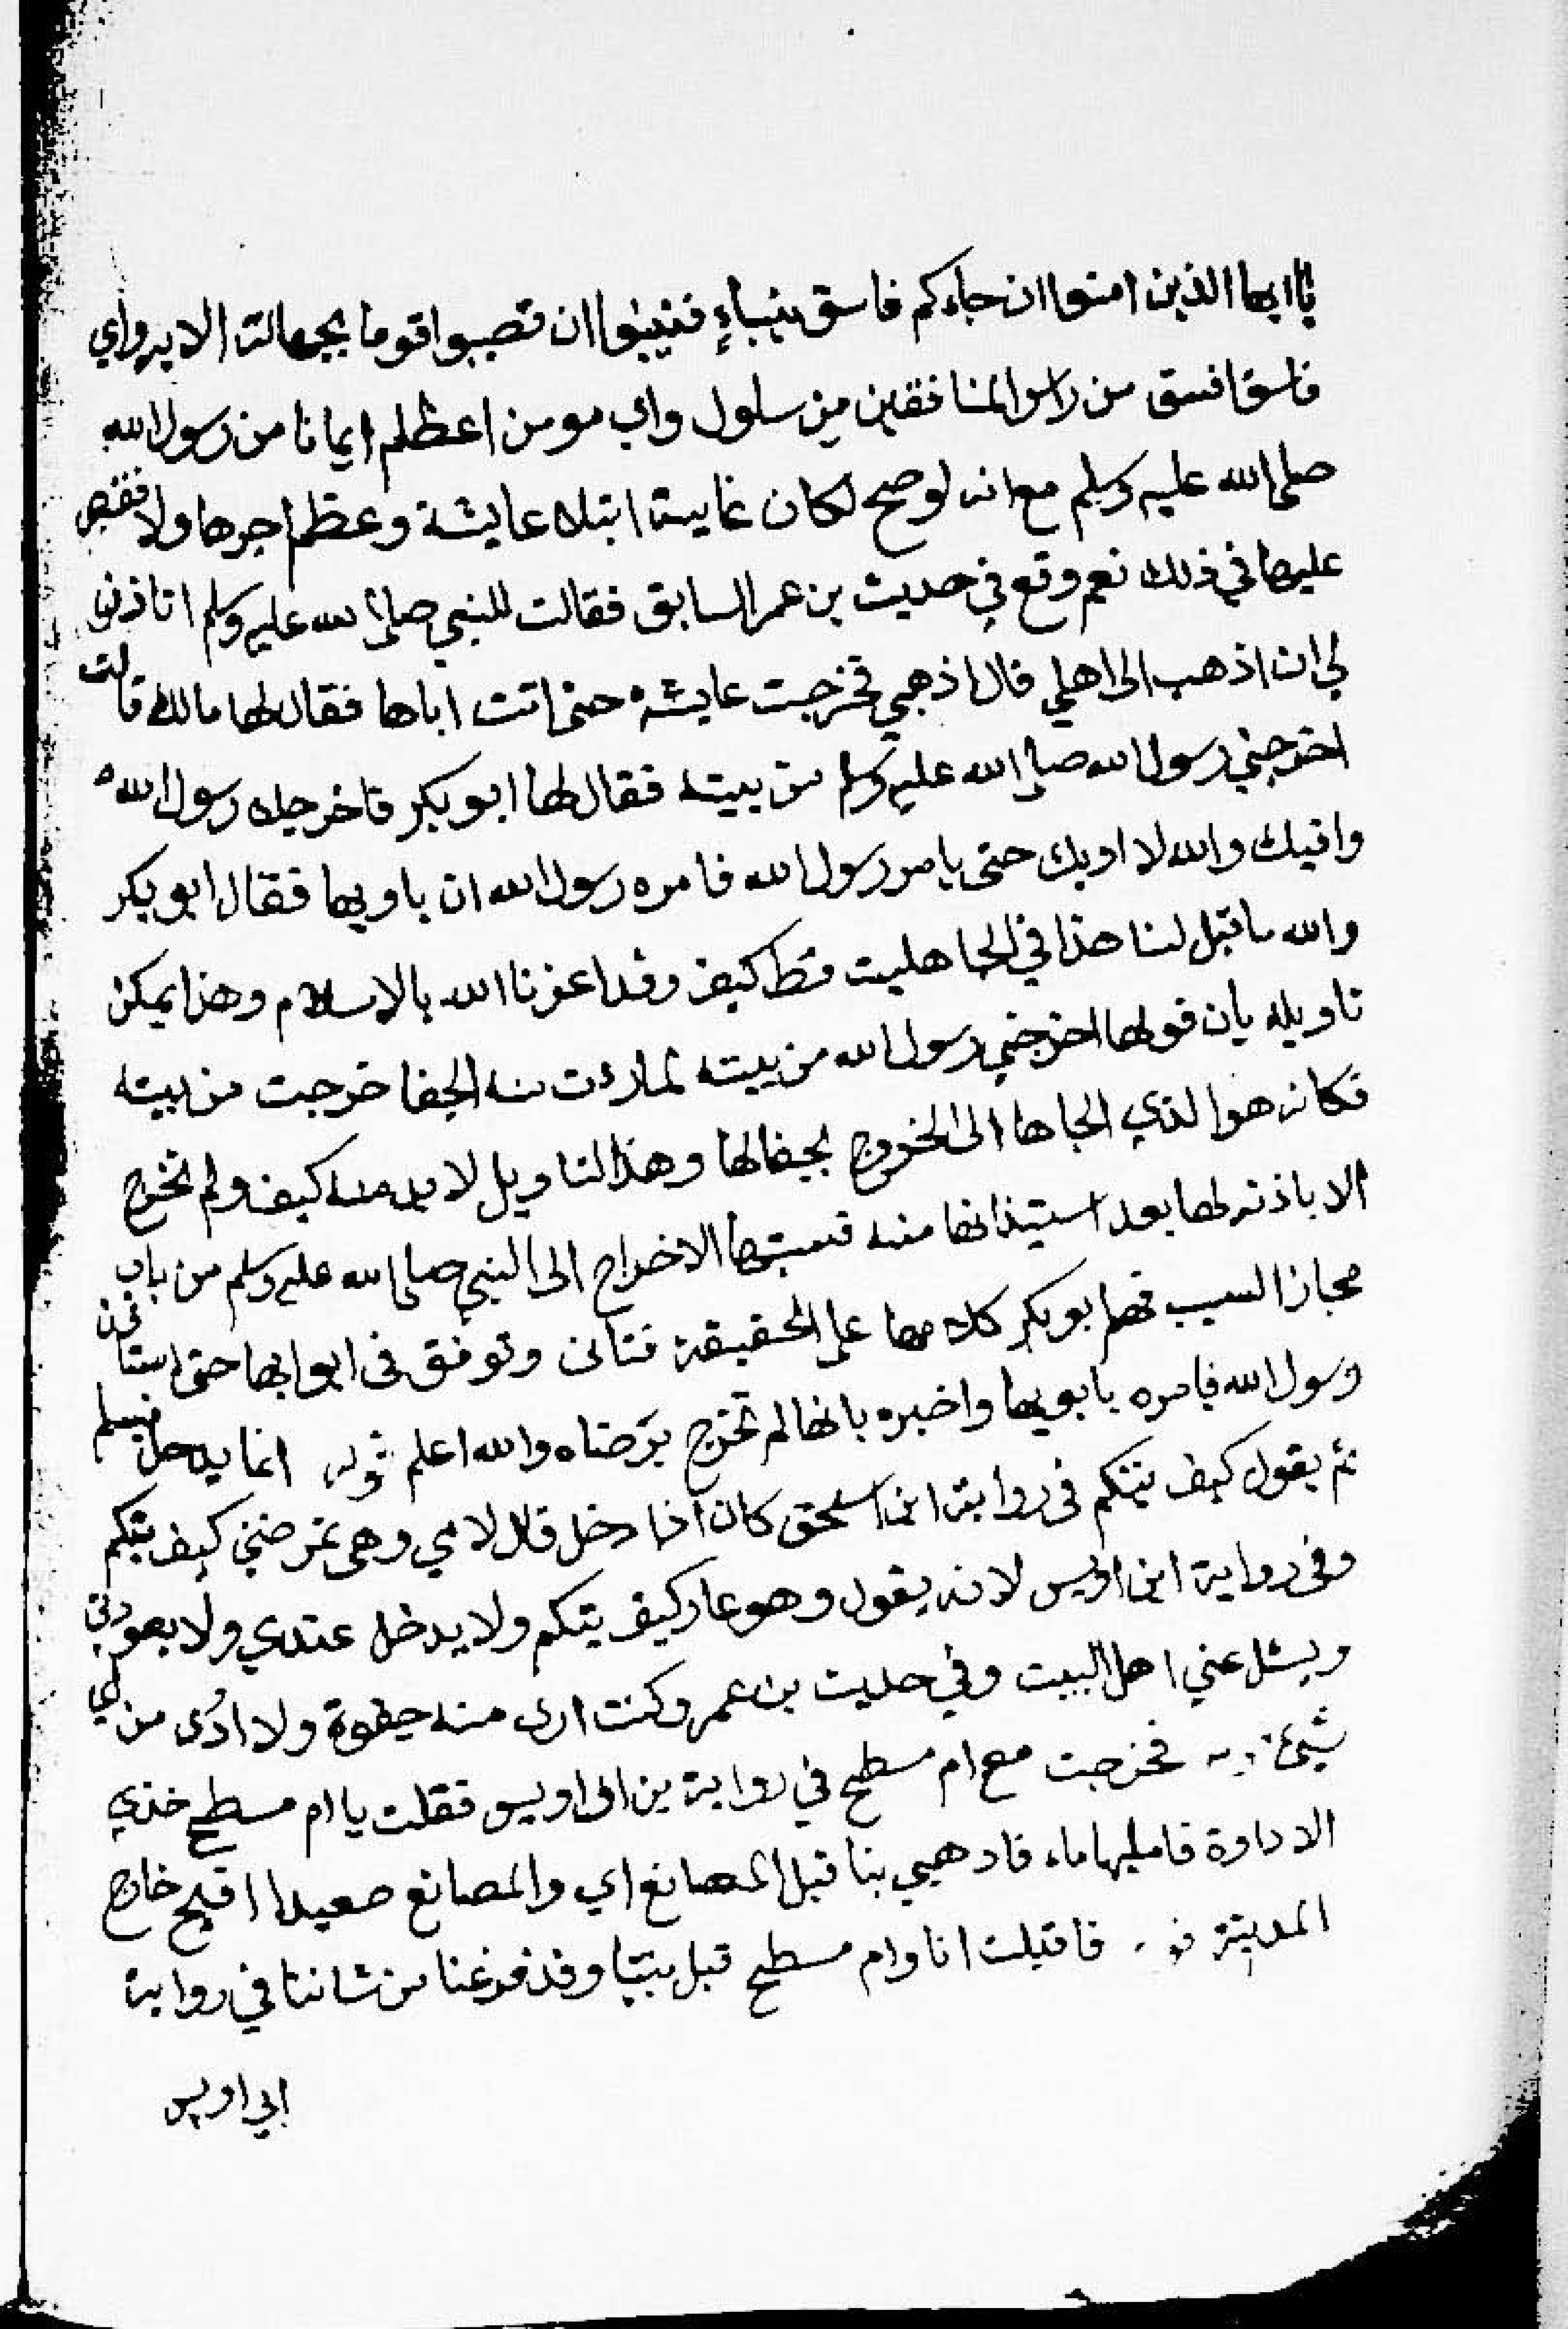 ياايها الذين امنوا ان جاءكم فاسق بنباءٍ فتبينوا ان تصيبوا قوما بجهالت الايه واي
فاسق افسق من راس المنافقين بن سلول واي مومن اعظم ايمانا من رسول الله
صلى الله عليه وسلم مع انه لو صح لكان غايية ابتلاء عايشة وعظم اجرها ولا نقص
عليها في ذلك نعم وقع في حديث بن عمر السابق فقالت للنبي صلى الله عليه وسلم اتاذن
لي ان اذهب الى اهلي قال اذهبي فخرجت عايشه حتى اتت اباها فقال لها مالك قالت
اخرجني رسول الله صلى الله عليه وسلم من بيته فقال لها ابو بكر فاخرجك رسول الله
واويك والله لا اويك حتى يامر رسول الله فامره رسول الله ان ياويها فقال ابو بكر
والله ما قبل لنا هذا في الجاهليت قط كيف وقد اعزنا الله بالاسلام وهذا يمكن
تاويله بان قولها اخرجني رسول الله من بيته لما رءت منه الجفا خرجت من بيته
فكانه هو الذي الجاها الى الخروج بجفالها وهذا التاويل لا بد منه كيف ولم تخرج
الا باذنه لها بعد استيذانها منه فنسبتها الاخراج الى النبي صلى الله عليه وسلم من باب
مجاز السبب فهم ابو بكر كلامها على الحقيقة فتانى وتوفق في ايوايها حتى استاذن
رسول الله فامره بايويها واخبره بانها لم تخرج برضاه والله اعلم قوله انما يدخل فيسلم
ثم يقول كيف تيكم في رواية ابن اسحق كان اذا دخل قال لامي وهي تمرضني كيف تيكم
وفي رواية ابن اويس لانه يقول وهو مار كيف تيكم ولا يدخل عندي ولا يعودني
ويسئل عني اهل البيت وفي حديث بن عمر وكنت ارى منه جفوة ولا ادرى من اي
شيء قوله فخرجت مع ام مسطح في رواية بن ابي اويس فقلت يا ام مسطح خذي
الاداوة فامليها ماء فاذهبي بنا قبل المصانع اي والمصانع صعيدا افيح خارج
المدينة قوله فاقبلت انا وام مسطح قبل بيتي وقد فرغنا من شاننا في رواية
ابي اويس